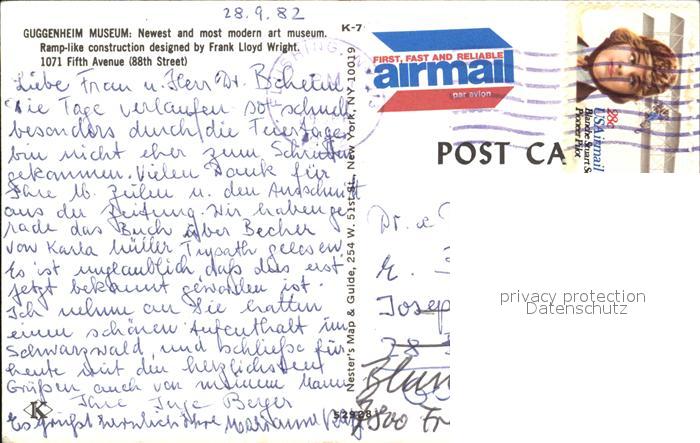 28.9.82
GUGGENHEIM MUSEUM: Newest and most modern art museum.
Ramp-like construction designed by Frank Lloyd Wright.
1071 Fifth Avenue (88th Street)
K-7
Liebe Frau u. Herr Dr.
die Tage verlaufen so schnell
besonders durch die Feiertage
bin nicht eher zum Schreiben
gekommen. Vielen Dank für
Ihre lb. Zeilen u. den Ausschnitt
aus der Zeitung. Wir haben ge
rade das Buch über Becher
von Karla Müller gelesen
Es ist unglaublich daß dies erst
jetzt bekannt geworden ist.
Ich nehme an Sie hatten
einen schönen Aufenthalt im
Schwarzwald und schließe für
heute mit den herzlichsten
Grüßen auch von meinem Mann
Ihre Inge Berger
Es grüßt herzlich Ihre Marianne
K
Nester's Map & Guide, 254 W. 51st St., New York, NY 10019
FIRST, FAST AND RELIABLE
airmail
par avion
28c
USAirmail
Blanche Stuart S
Pioneer Pilot
POST CA
Dr.
Josep
78
7800 Fr
privacy protection
Datenschutz